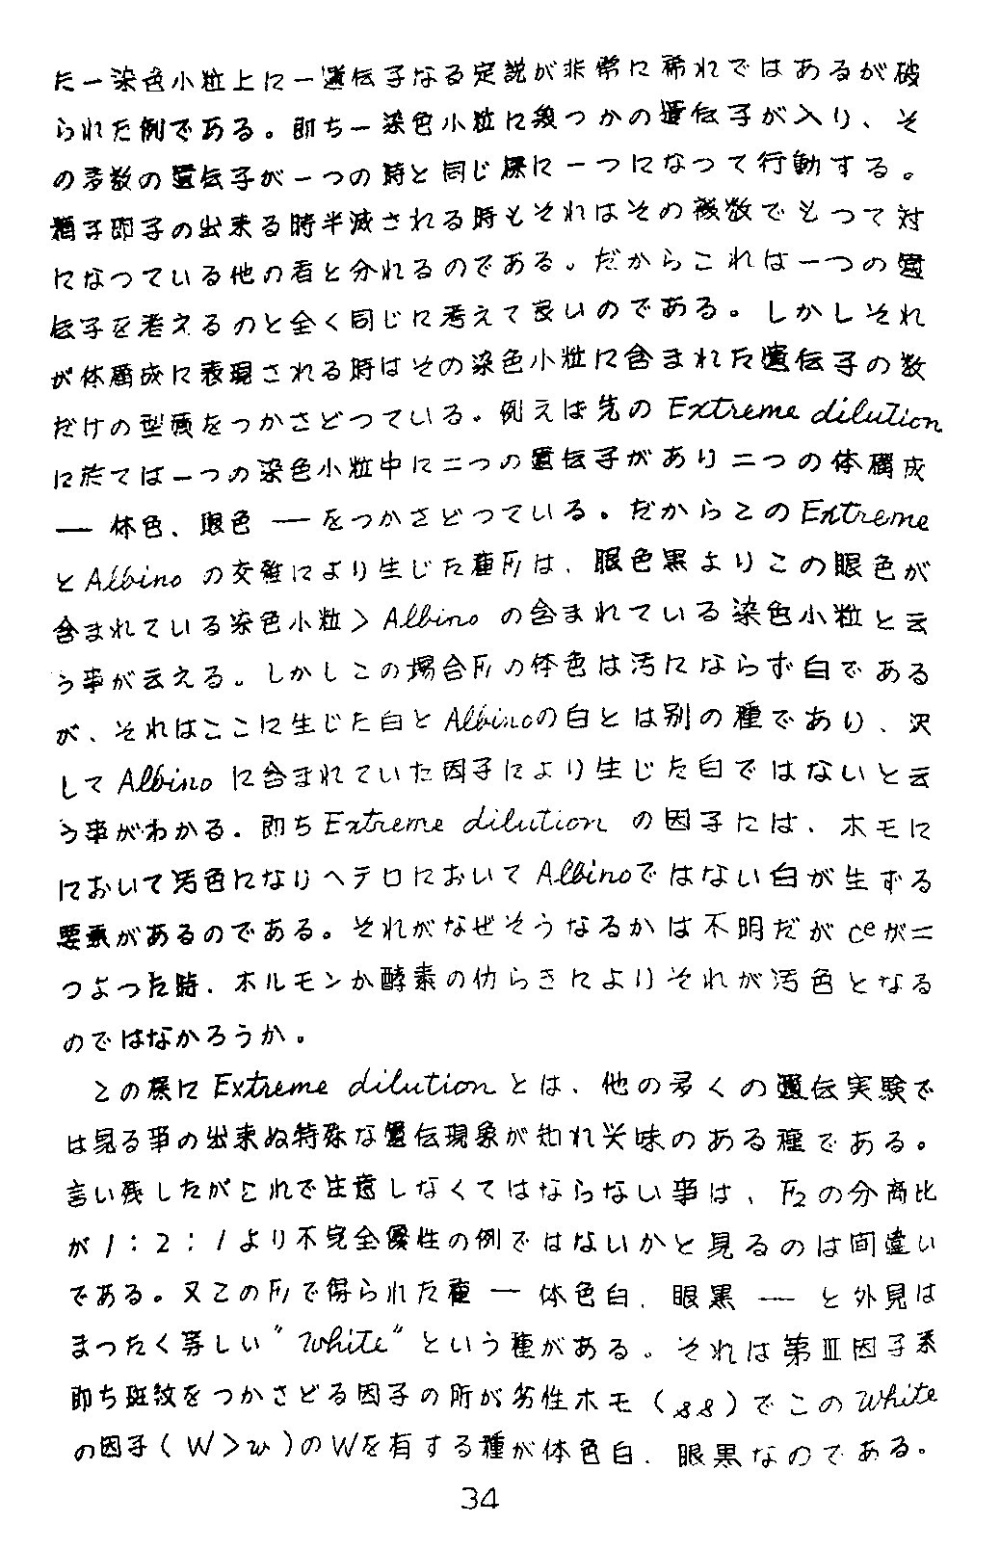 た一染色小粒上に一遺伝子なる定説が非常に稀れではあるが破
られた例である。即ち一染色小粒に幾つかの遺伝子が入り、そ
の多数の遺伝子が一つの時と同じ様に一つになつて行動する。
精子卵子の出来る時半減される時もそれはその複数でもつて対
になつている他の者と分れるのである。だからこれは一つの遺
伝子を考えるのと全く同じに考えて良いのである。しかしそれ
が体構成に表現される時はその染色小粒に含まれた遺伝子の数
だけの型質をつかさどつている。例えば先の Extreme dilution
に於ては一つの染色小粒中に二つの遺伝子があり二つの体構成
― 体色、眼色 ― をつかさどつている。だからこの Extreme
と Albino の交雑により生じた種F1は、眼色黒よりこの眼色が
含まれている染色小粒＞Albino の含まれている染色小粒と云
う事が云える。しかしこの場合F1の体色は汚にならず白である
が、それはここに生じた白とAlbinoの白とは別の種であり、決
して Albino に含まれていた因子により生じた白ではないと云
う事がわかる。即ち Extreme dilution の因子には、ホモに
において汚色になりヘテロにおいて Albinoではない白が生ずる
要素があるのである。それがなぜそうなるかは不明だが ceが二
つよつた時、ホルモンか酵素の仂らきによりそれが汚色となる
のではなかろうか。
この様に Extreme dilution とは、他の多くの遺伝実験で
は見る事の出来ぬ特殊な遺伝現象が知れ興味のある種である。
言い残したがこれで注意しなくてはならない事は、F2の分離比
が 1：2：1より不完全優性の例ではないかと見るのは間違い
である。又このF1で得られた種 ― 体色白、眼黒 ― と外見は
まつたく等しい"White"という種がある。それは第Ⅲ因子系
即ち斑紋をつかさどる因子の所が劣性ホモ（ss）でこのWhite
の因子（W＞w）のWを有する種が体色白、眼黒なのである。
34